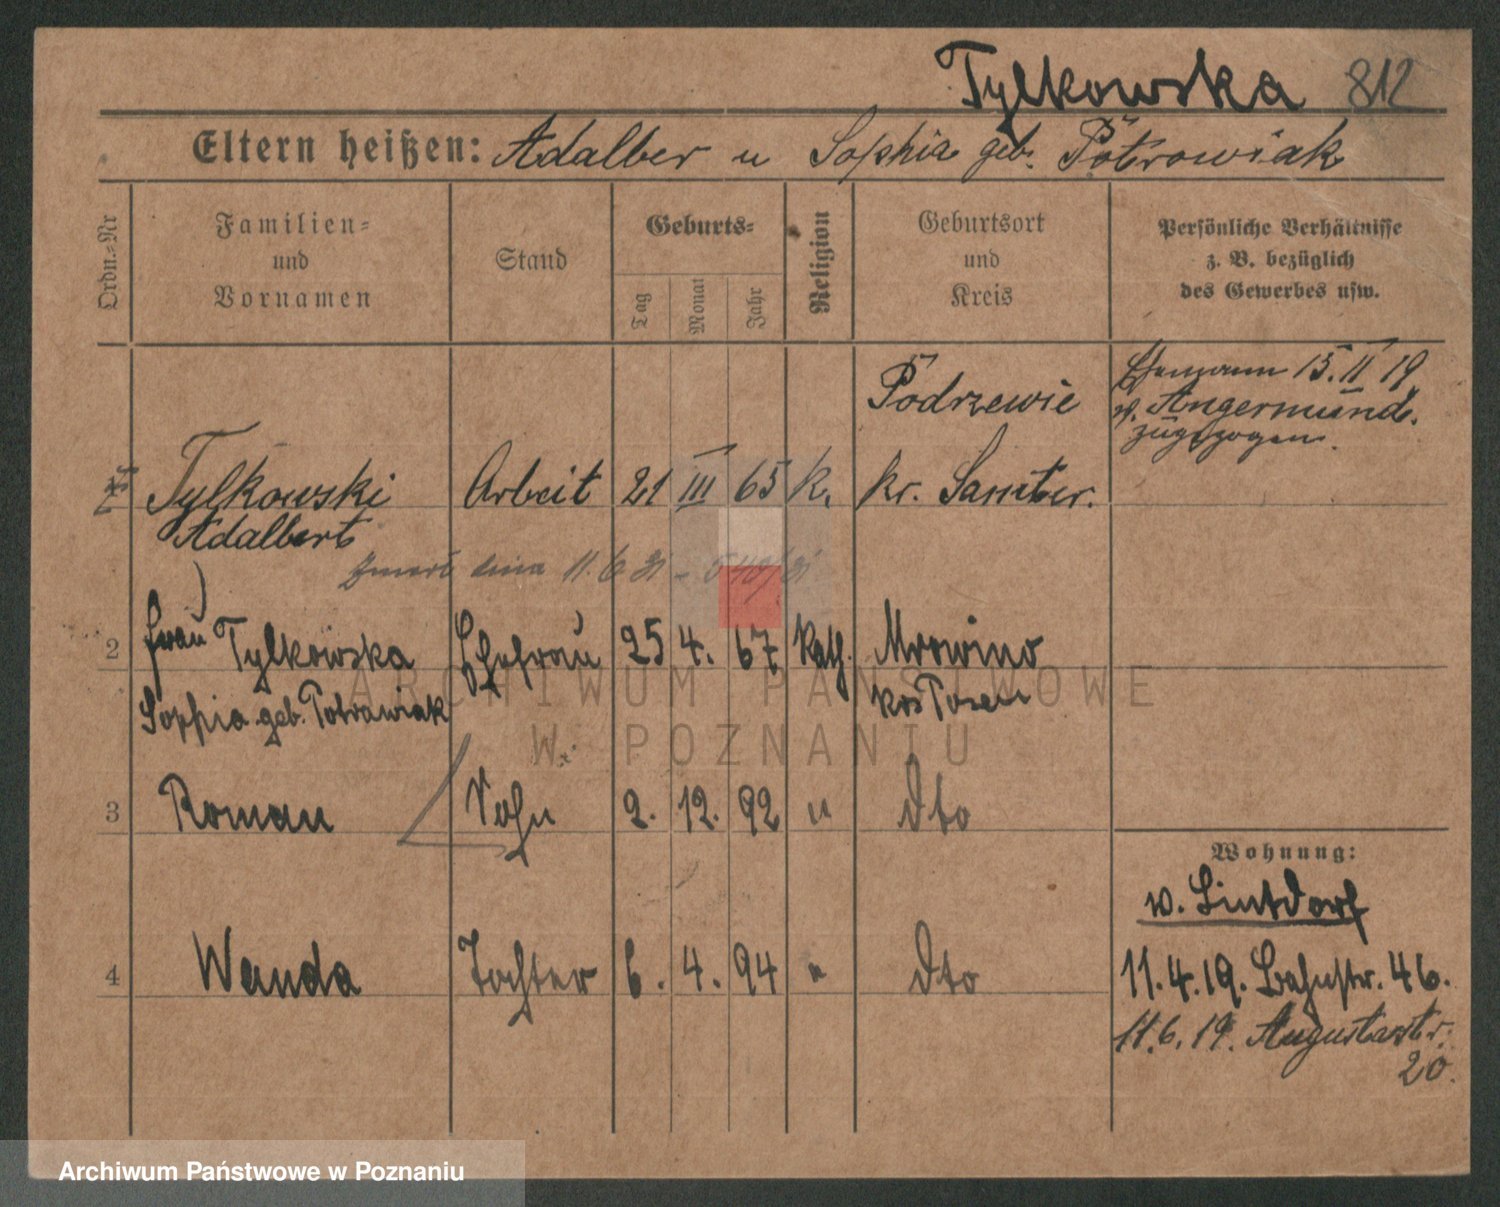 Tylkowska 812
Eltern heißen: Adalber u Sophia geb. Potrowiak
Ordn.=Nr
Familien=
und
Vornamen
Stand
Geburts=
Tag
Monat
Jahr
Religion
Geburtsort
und
Kreis
Persönliche Verhältnisse
z. B. bezüglich
des Gewerbes usw.
Ehemann 15. II 19
v. Angermünd.
zugezogen.
Podrzewie
Tylkowski Arbeit 21 III 65 k. kr. Samter.
Adalbert
zmarł dnia 11. 6 31
2 frau Tylkowska Ehefrau 25 4. 67 kath. Mrowino
Sophia geb. Potrawiak krs Posen
3 Roman Sohn 2. 12. 92 " dto
Wohnung:
v. Lintdorf
4 Wanda Tochter 6. 4. 94 " dto
11.4.19. Bahnstr. 46.
11.6.19. Augustastr.
20.
ARCHIWUM PAŃSTWOWE
W POZNANIU
Archiwum Państwowe w Poznaniu